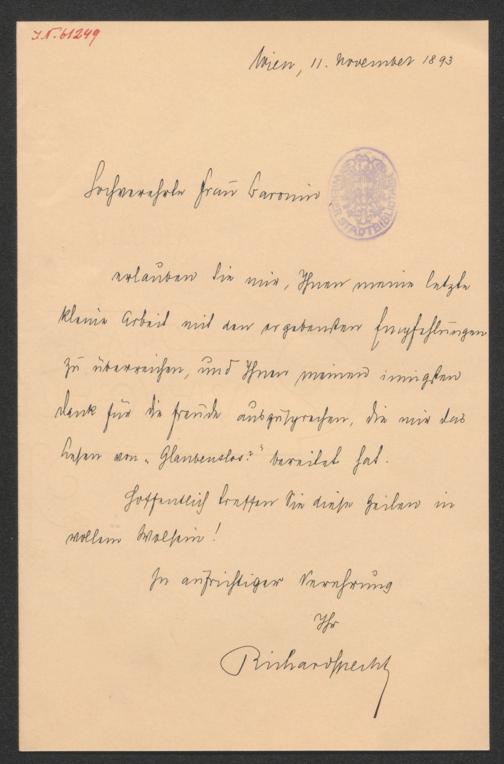 I.N. 61249
Wien, 11. November 1893
Hochverehrte Frau Baronin
WIENER STADTBIBLIOTHEK
erlauben Sie mir, Ihnen meine letzte
kleine Arbeit mit den ergebensten Empfehlungen
zu überreichen, und Ihnen meinen innigsten
Dank für die Freude auszusprechen, die mir das
Lesen von „Glaubenslos?" bereitet hat.
Hoffentlich treffen Sie diese Zeilen in
vollem Wolsein!
In aufrichtiger Verehrung
Ihr
Richard Specht